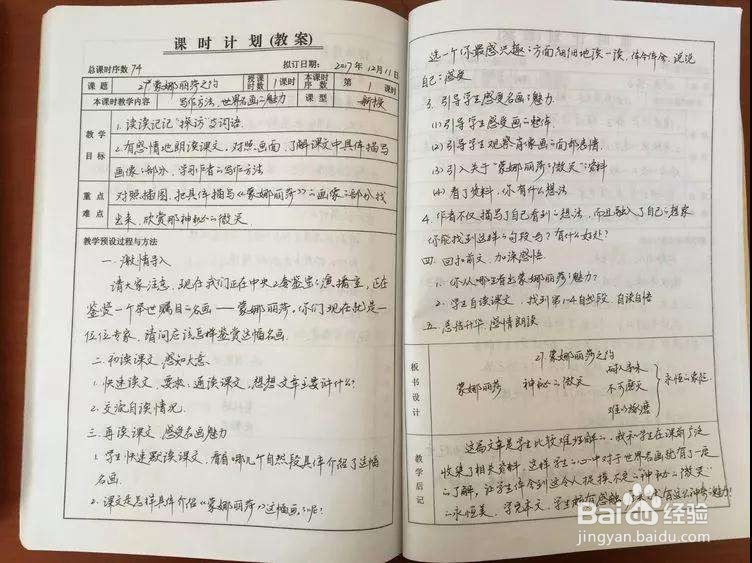 课时计划(教案)
总课时序数 74 拟订日期: 2017年12月11日
课题 27* 蒙娜丽莎之约 授课时数 1课时 本课时序数 第1课时
本课时教学内容 写作方法,世界名画之魅力 课型 新授
教学目标
1.读读记记"探访"等词语
2.有感情地朗读课文,对照画面,了解课文中具体描写
画像的部分,学习作者的写作方法
重点难点
对照插图,把具体描写《蒙娜丽莎》的画像的部分找
出来,欣赏那神秘的微笑
教学预设过程与方法
一、激情导入
请大家注意,现在我们正在中央2套鉴宝的演播室,正在
鉴赏一个举世瞩目的名画——蒙娜丽莎,你们现在就是一
位位专家,请问应该怎样鉴赏这幅名画
二、初读课文,感知大意
1.快速读文,要求:通读课文,想想文章主要讲什么?
2.交流自读情况
三、再读课文,感受名画魅力
1.学生快速默读课文,看看哪几个自然段具体介绍了这幅
名画
2.课文是怎样具体介绍《蒙娜丽莎》这幅画的呢?
选一个你最感兴趣的方面细细地读一读,体会体会,说说
自己的感受
3.引导学生感受名画的魅力
(1)引导学生感受画的整体
(2)引导学生观察肖像画的面部表情
(3)引入关于"蒙娜丽莎的微笑"的资料
(4)看了资料,你有什么想法
4.作者不仅描写了自己看到的想法,而且融入了自己的想象
你能找到这样的句段吗?有什么好处?
四、回扣前文,加深感悟
1.你从哪里看出蒙娜丽莎的魅力?
2.学生自读课文,找到第1-4自然段,自读自悟
五、总结升华,感情朗读
板书设计
27 蒙娜丽莎之约
蒙娜丽莎 神秘的微笑 耐人寻味 不可磨灭 难以捉摸 永恒的象征
教学后记
这篇文章是学生比较难理解的,我和学生在课前广泛
收集了相关资料,这样学生的心中对于世界名画就有了一定
的了解,让学生体会到这令人捉摸不定的神秘的微笑
的永恒美,学完本文,学生都有感触
Baidu百科经验
jingyan.baidu.com